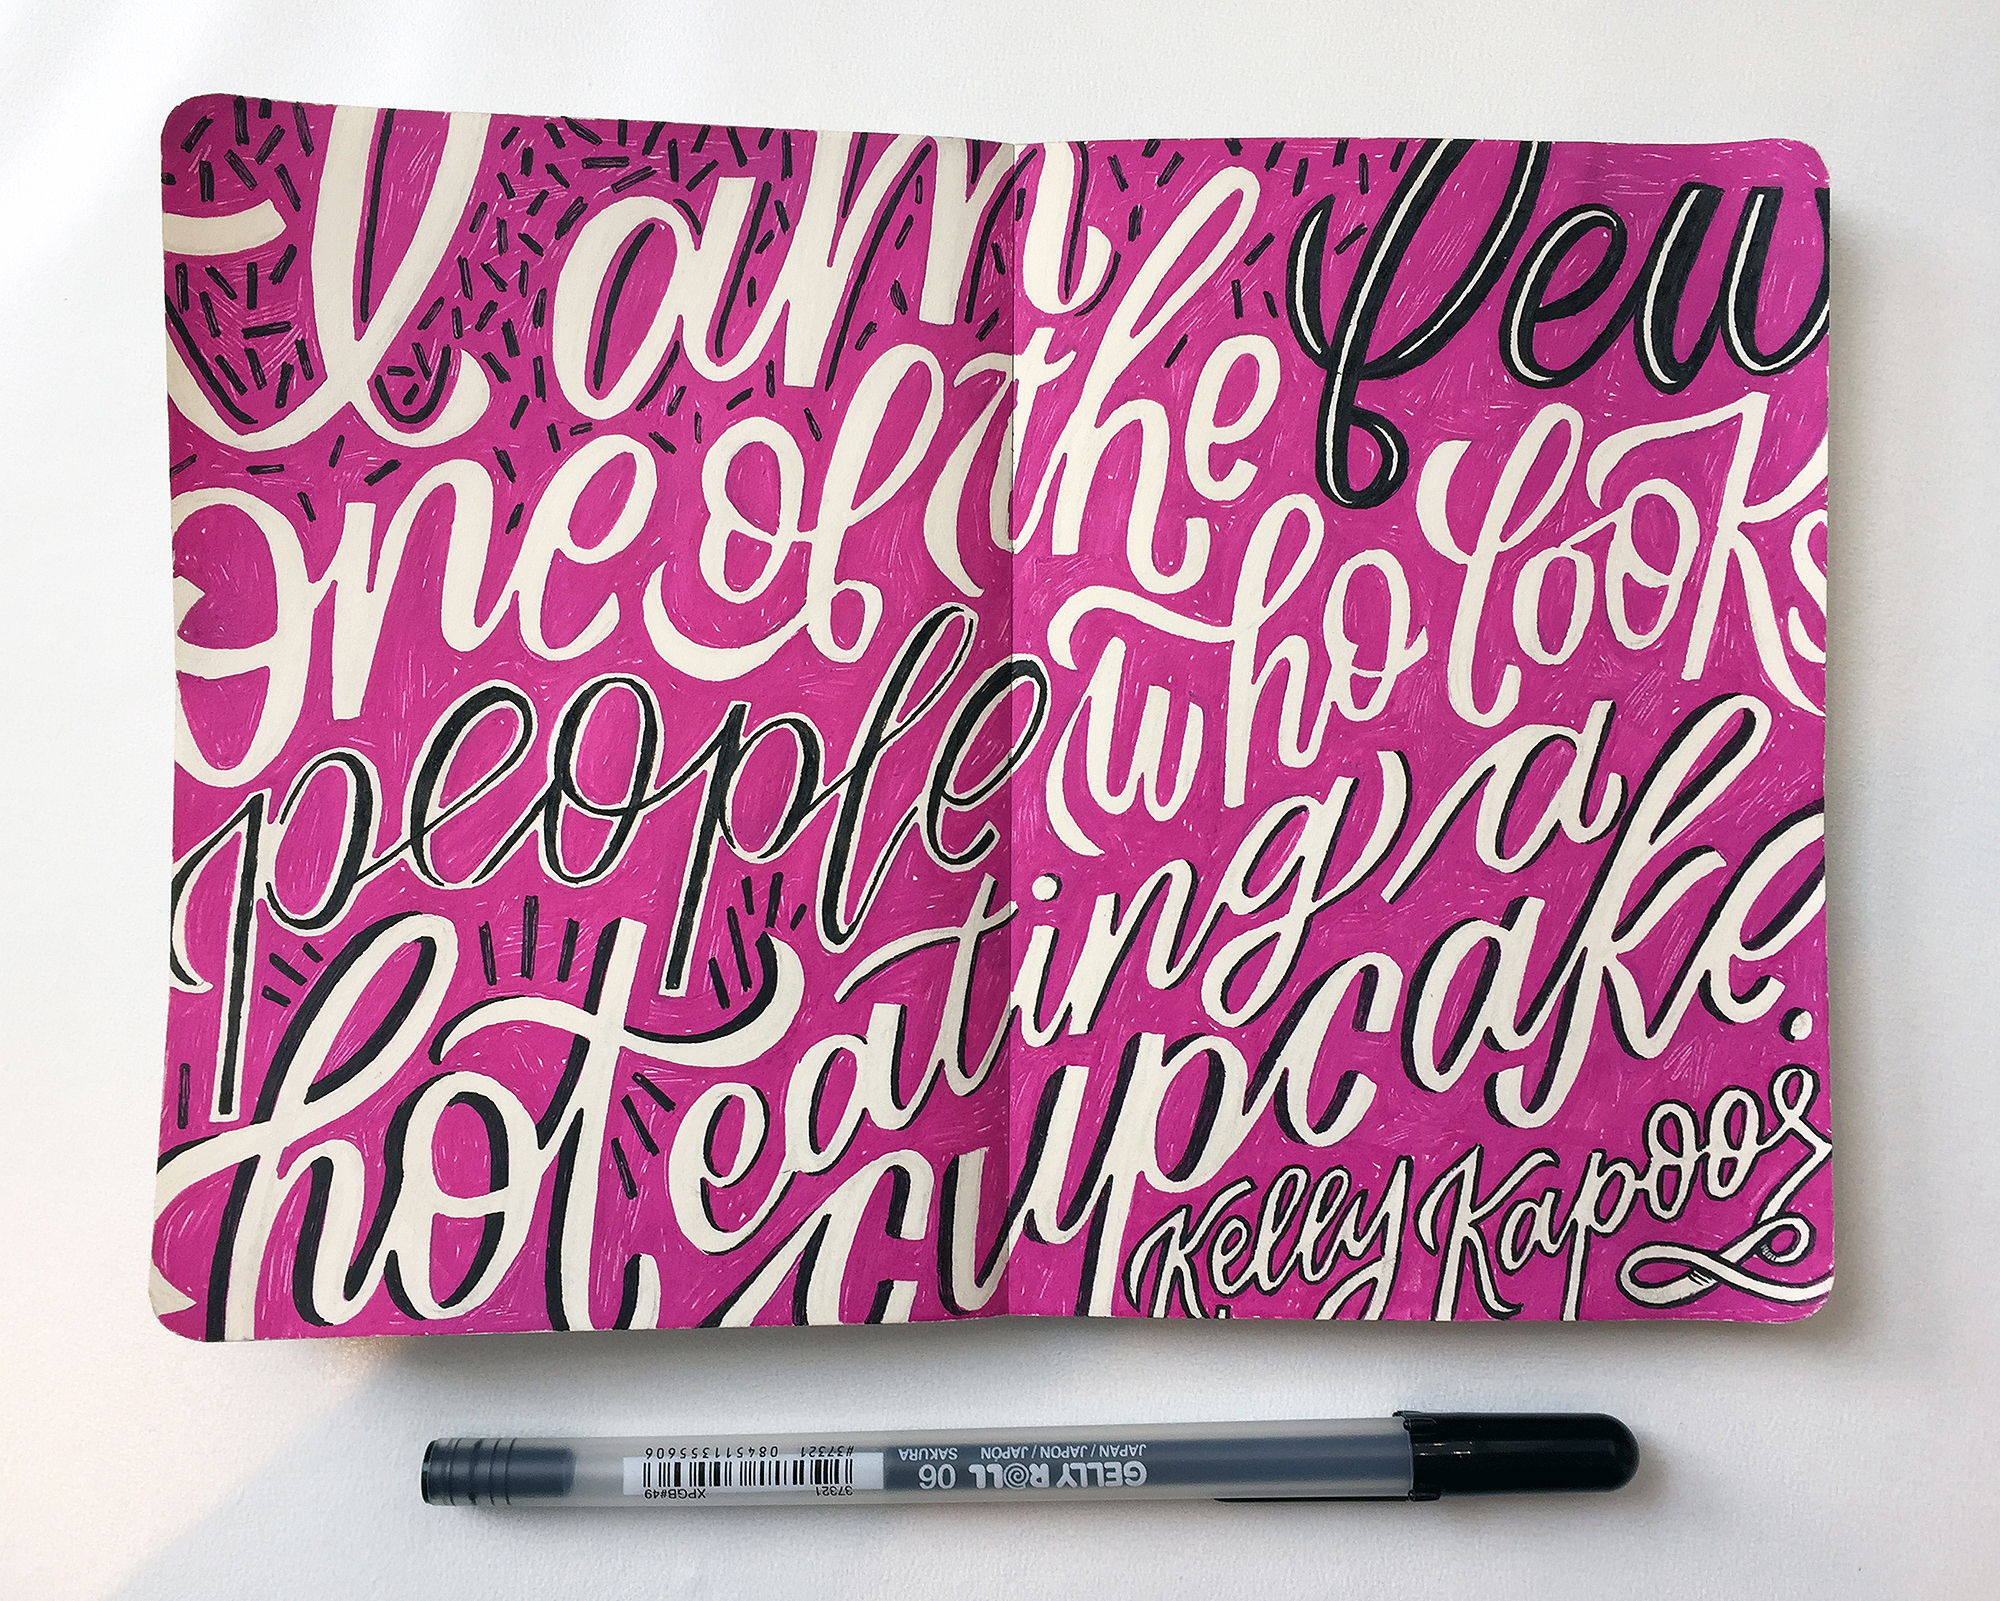 I am
one of the few
people who looks
hot eating a
cupcake.
Kelly Kapoor
GELLY ROLL 06
JAPAN / JAPON / JAPÓN SAKURA
37321 XPGB#49
#37321 084511355606